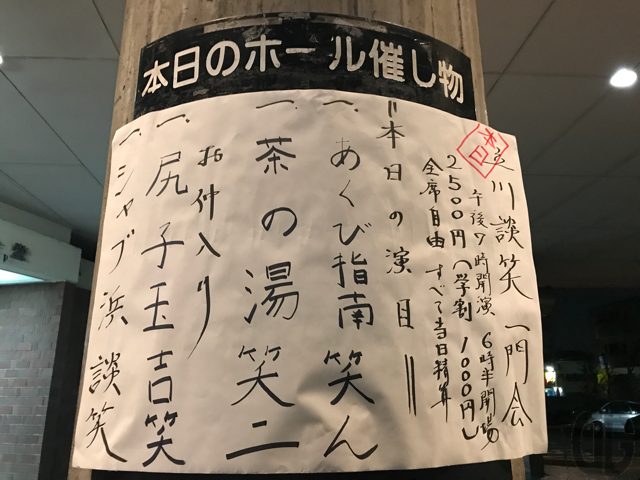 本日のホール催し物
本日
立川談笑一門会
午後7時開演 6時半開場
2500円(学割 1000円)
全席自由 すべて当日精算
=本日の演目=
一、あくび指南 笑ん
一、茶の湯 笑二
お仲入り
一、尻子玉 吉笑
一、シャブ浜 談笑